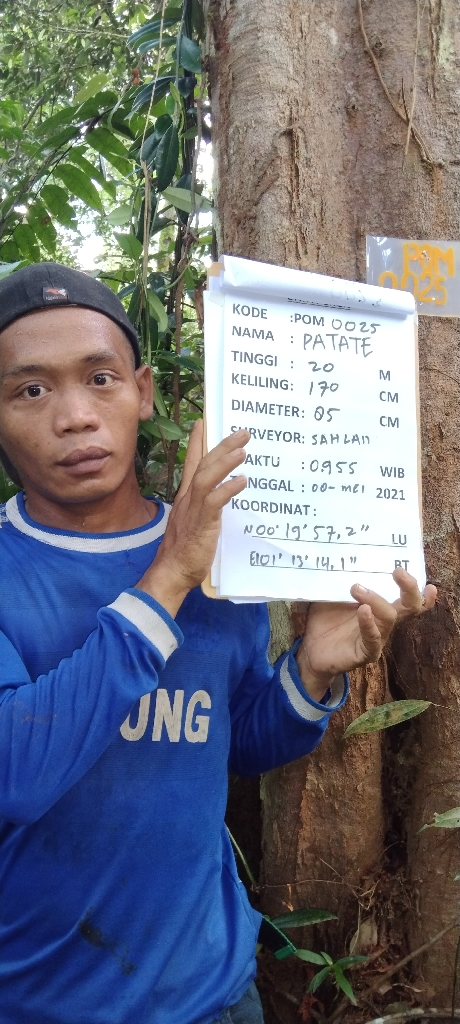 POM
0025
KODE : POM 0025
NAMA : PATATE
TINGGI : 20 M
KELILING: 170 CM
DIAMETER: 05 CM
SURVEYOR: SAHLAN
WAKTU : 0955 WIB
NGGAL : 00-MEI 2021
KOORDINAT:
N00° 19' 57,2" LU
E101° 13' 14,1" BT
UNG